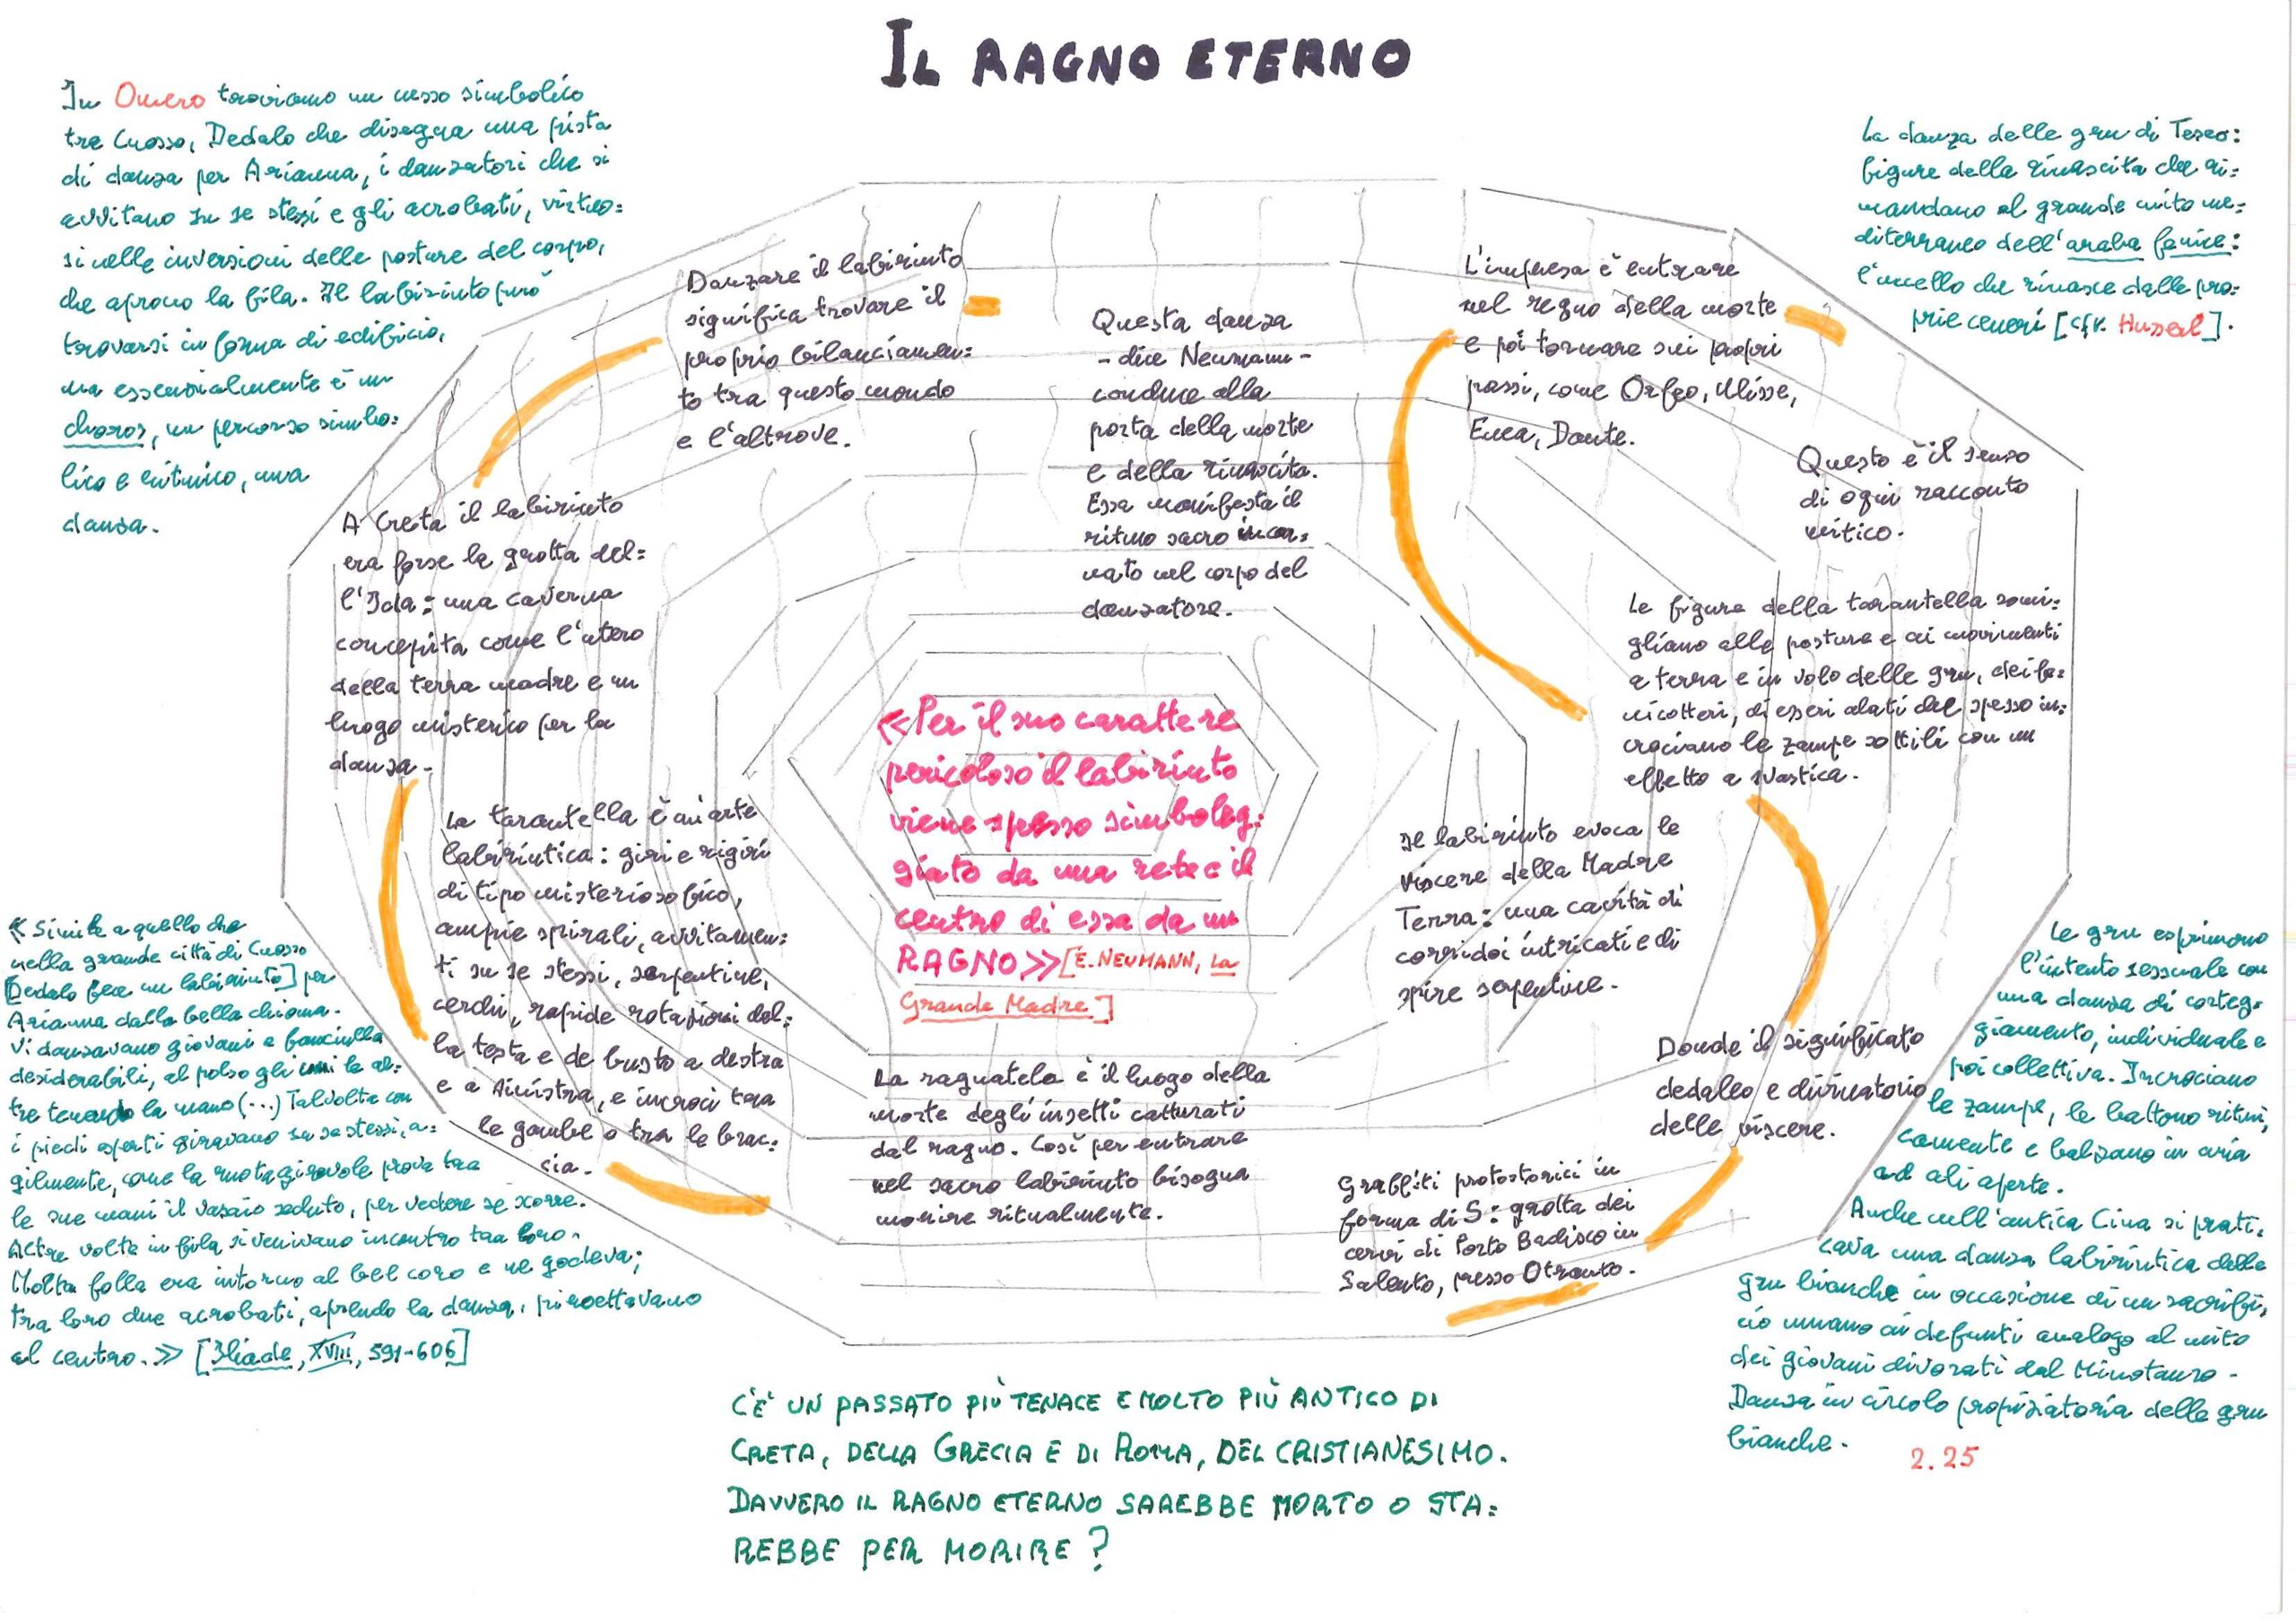 IL RAGNO ETERNO
In Omero troviamo un nesso simbolico
tra Cnosso, Dedalo che disegna una pista
di danza per Arianna, i danzatori che si
avvitano su se stessi e gli acrobati, virtuo=
si nelle inversioni delle posture del corpo,
che aprono la fila. Il labirinto può
trovarsi in forma di edificio,
ma essenzialmente è un
choros, un percorso simbo=
lico e ritmico, una
danza.
La danza delle gru di Teseo:
figure della rinascita che ri=
mandano al grande mito me=
diterraneo dell'araba fenice:
l'uccello che rinasce dalle pro=
prie ceneri [cfr. Husserl].
Danzare il labirinto
significa trovare il
proprio bilanciamen=
to tra questo mondo
e l'altrove.
Questa danza
- dice Neumann -
conduce alla
porta della morte
e della rinascita.
Essa manifesta il
ritmo sacro incar=
nato nel corpo del
danzatore.
L'impresa è entrare
nel regno della morte
e poi tornare sui propri
passi, come Orfeo, Ulisse,
Enea, Dante.
Questo è il senso
di ogni racconto
mitico.
A Creta il labirinto
era forse la grotta del=
l'Ida: una caverna
concepita come l'utero
della terra madre e un
luogo misterico per la
danza.
Le figure della tarantella somi=
gliano alle posture e ai movimenti
a terra e in volo delle gru, dei fe=
nicotteri, di esseri alati che spesso in=
crociano le zampe sottili con un
effetto a svastica.
«Per il suo carattere
pericoloso il labirinto
viene spesso simboleg=
giato da una rete e il
centro di essa da un
RAGNO» [E. NEUMANN, La
Grande Madre]
La tarantella è un'arte
labirintica: giri e rigiri
di tipo misteriosofico,
ampie spirali, avvitamen=
ti su se stessi, serpentine,
cerchi, rapide rotazioni del=
la testa e de busto a destra
e a sinistra, e incroci tra
le gambe o tra le brac=
cia.
Il labirinto evoca le
viscere della Madre
Terra: una cavità di
corridoi intricati e di
spire serpentine.
Donde il significato
dedaleo e divinatorio
delle viscere.
La ragnatela è il luogo della
morte degli insetti catturati
dal ragno. Così per entrare
nel sacro labirinto bisogna
morire ritualmente.
Graffiti protostorici in
forma di S: grotta dei
cervi di Porto Badisco in
Salento, presso Otranto.
«Simile a quello che
nella grande città di Cnosso
Dedalo fece un labirinto] per
Arianna dalla bella chioma.
Vi danzavano giovani e fanciulle
desiderabili, al polso gli uni le al=
tre tenendo la mano (...) Talvolta con
i piedi esperti giravano su se stessi, a=
gilmente, come la ruota girevole prova tra
le sue mani il vasaio seduto, per vedere se scorre.
Altre volte in fila si venivano incontro tra loro.
Molta folla era intorno al bel coro e ne godeva;
tra loro due acrobati, aprendo la danza, piroettavano
al centro.» [Iliade, XVIII, 591-606]
Le gru esprimono
l'intento sessuale con
una danza di corteg=
giamento, individuale e
poi collettiva. Incrociano
le zampe, le battono ritmi=
camente e balzano in aria
ad ali aperte.
Anche nell'antica Cina si prati=
cava una danza labirintica delle
gru bianche in occasione di un sacrifi=
cio umano ai defunti analogo al mito
dei giovani divorati dal Minotauro.
Danza in circolo propiziatoria delle gru
bianche.
2.25
C'È UN PASSATO PIÙ TENACE E MOLTO PIÙ ANTICO DI
CRETA, DELLA GRECIA E DI ROMA, DEL CRISTIANESIMO.
DAVVERO IL RAGNO ETERNO SAREBBE MORTO O STA=
REBBE PER MORIRE?